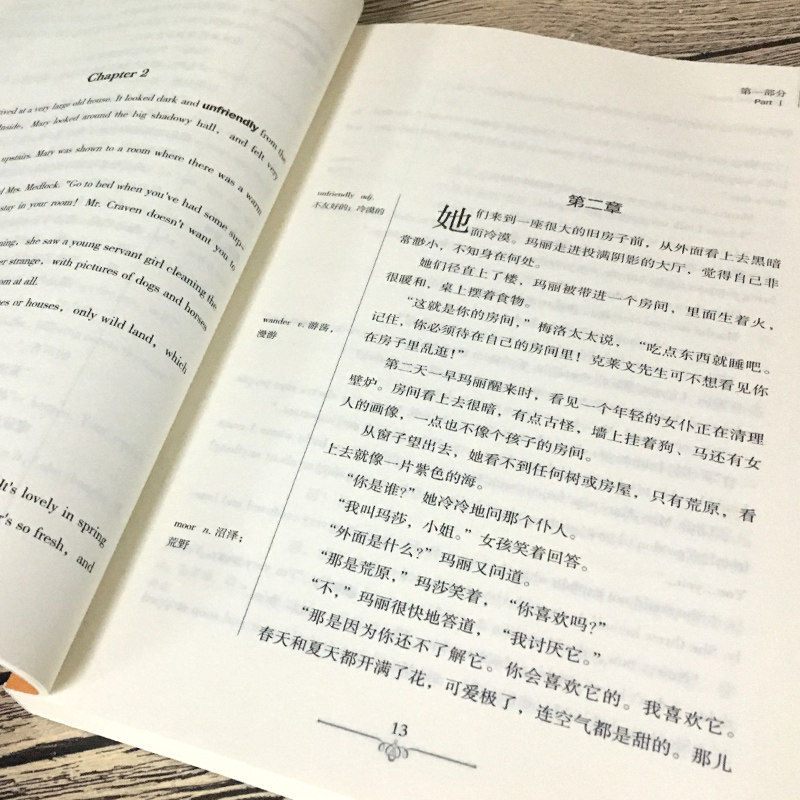 Chapter 2
rived at a very large old house. It looked dark and unfriendly from the
Inside, Mary looked around the big shadowy hall, and felt very
upstairs. Mary was shown to a room where there was a warm
Mrs. Medlock. "Go to bed when you've had some sup-
stay in your room! Mr. Craven doesn't want you to
ning, she saw a young servant girl cleaning the
strange, with pictures of dogs and horses
room at all.
es or houses, only wild land, which
It's lovely in spring
r's so fresh, and
第一部分
Part I
第二章
unfriendly adj.
不友好的；冷漠的
wander v. 游荡，
漫游
moor n. 沼泽；
荒野
她们来到一座很大的旧房子前，从外面看上去黑暗
而冷漠。玛丽走进投满阴影的大厅，觉得自己非
常渺小，不知身在何处。
她们径直上了楼，玛丽被带进一个房间，里面生着火，
很暖和，桌上摆着食物。
“这就是你的房间，”梅洛太太说，“吃点东西就睡吧。
记住，你必须待在自己的房间里！克莱文先生可不想看见你
在房子里乱逛！”
第二天一早玛丽醒来时，看见一个年轻的女仆正在清理
壁炉。房间看上去很暗，有点古怪，墙上挂着狗、马还有女
人的画像，一点也不像个孩子的房间。
从窗子望出去，她看不到任何树或房屋，只有荒原，看
上去就像一片紫色的海。
“你是谁？”她冷冷地问那个仆人。
“我叫玛莎，小姐。”女孩笑着回答。
“外面是什么？”玛丽又问道。
“那是荒原，”玛莎笑着，“你喜欢吗？”
“不，”玛丽很快地答道，“我讨厌它。”
“那是因为你还不了解它。你会喜欢它的。我喜欢它。
春天和夏天都开满了花，可爱极了，连空气都是甜的。那儿
13